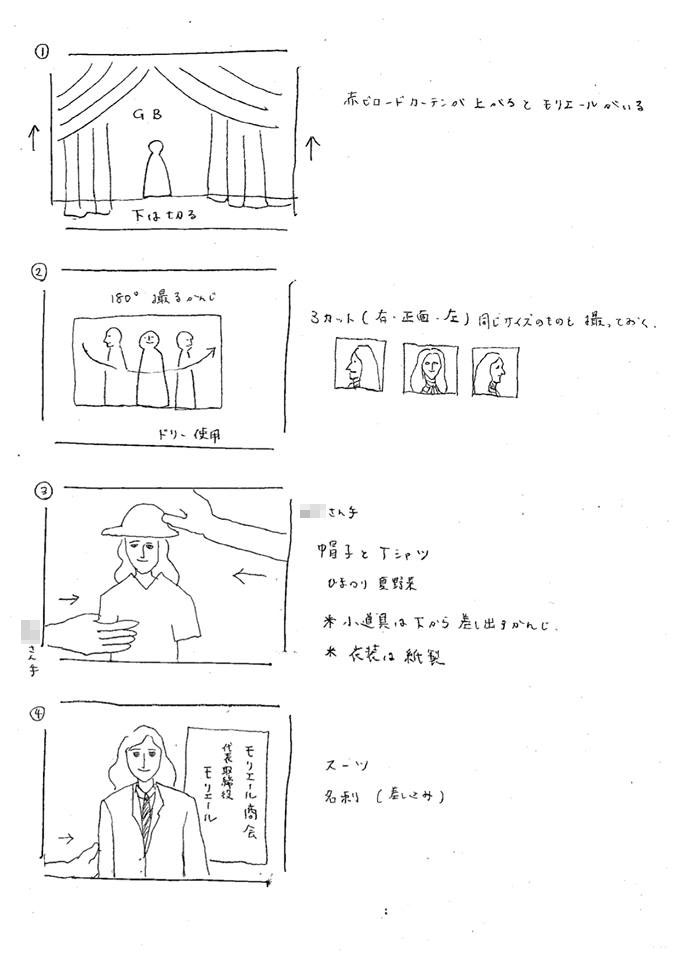 ①
赤ビロードカーテンが 上がると モリエールがいる
GB
下は切る
②
180° 撮るかんじ
ドリー使用
3カット(右・正面・左)同じサイズのものも 撮っておく.
③
さん手
さん手
帽子とTシャツ
ひまわり 夏野菜
* 小道具は下から差し出すかんじ.
* 衣装は紙製
④
モリエール商会
代表取締役
モリエール
スーツ
名刺 (差し込み)